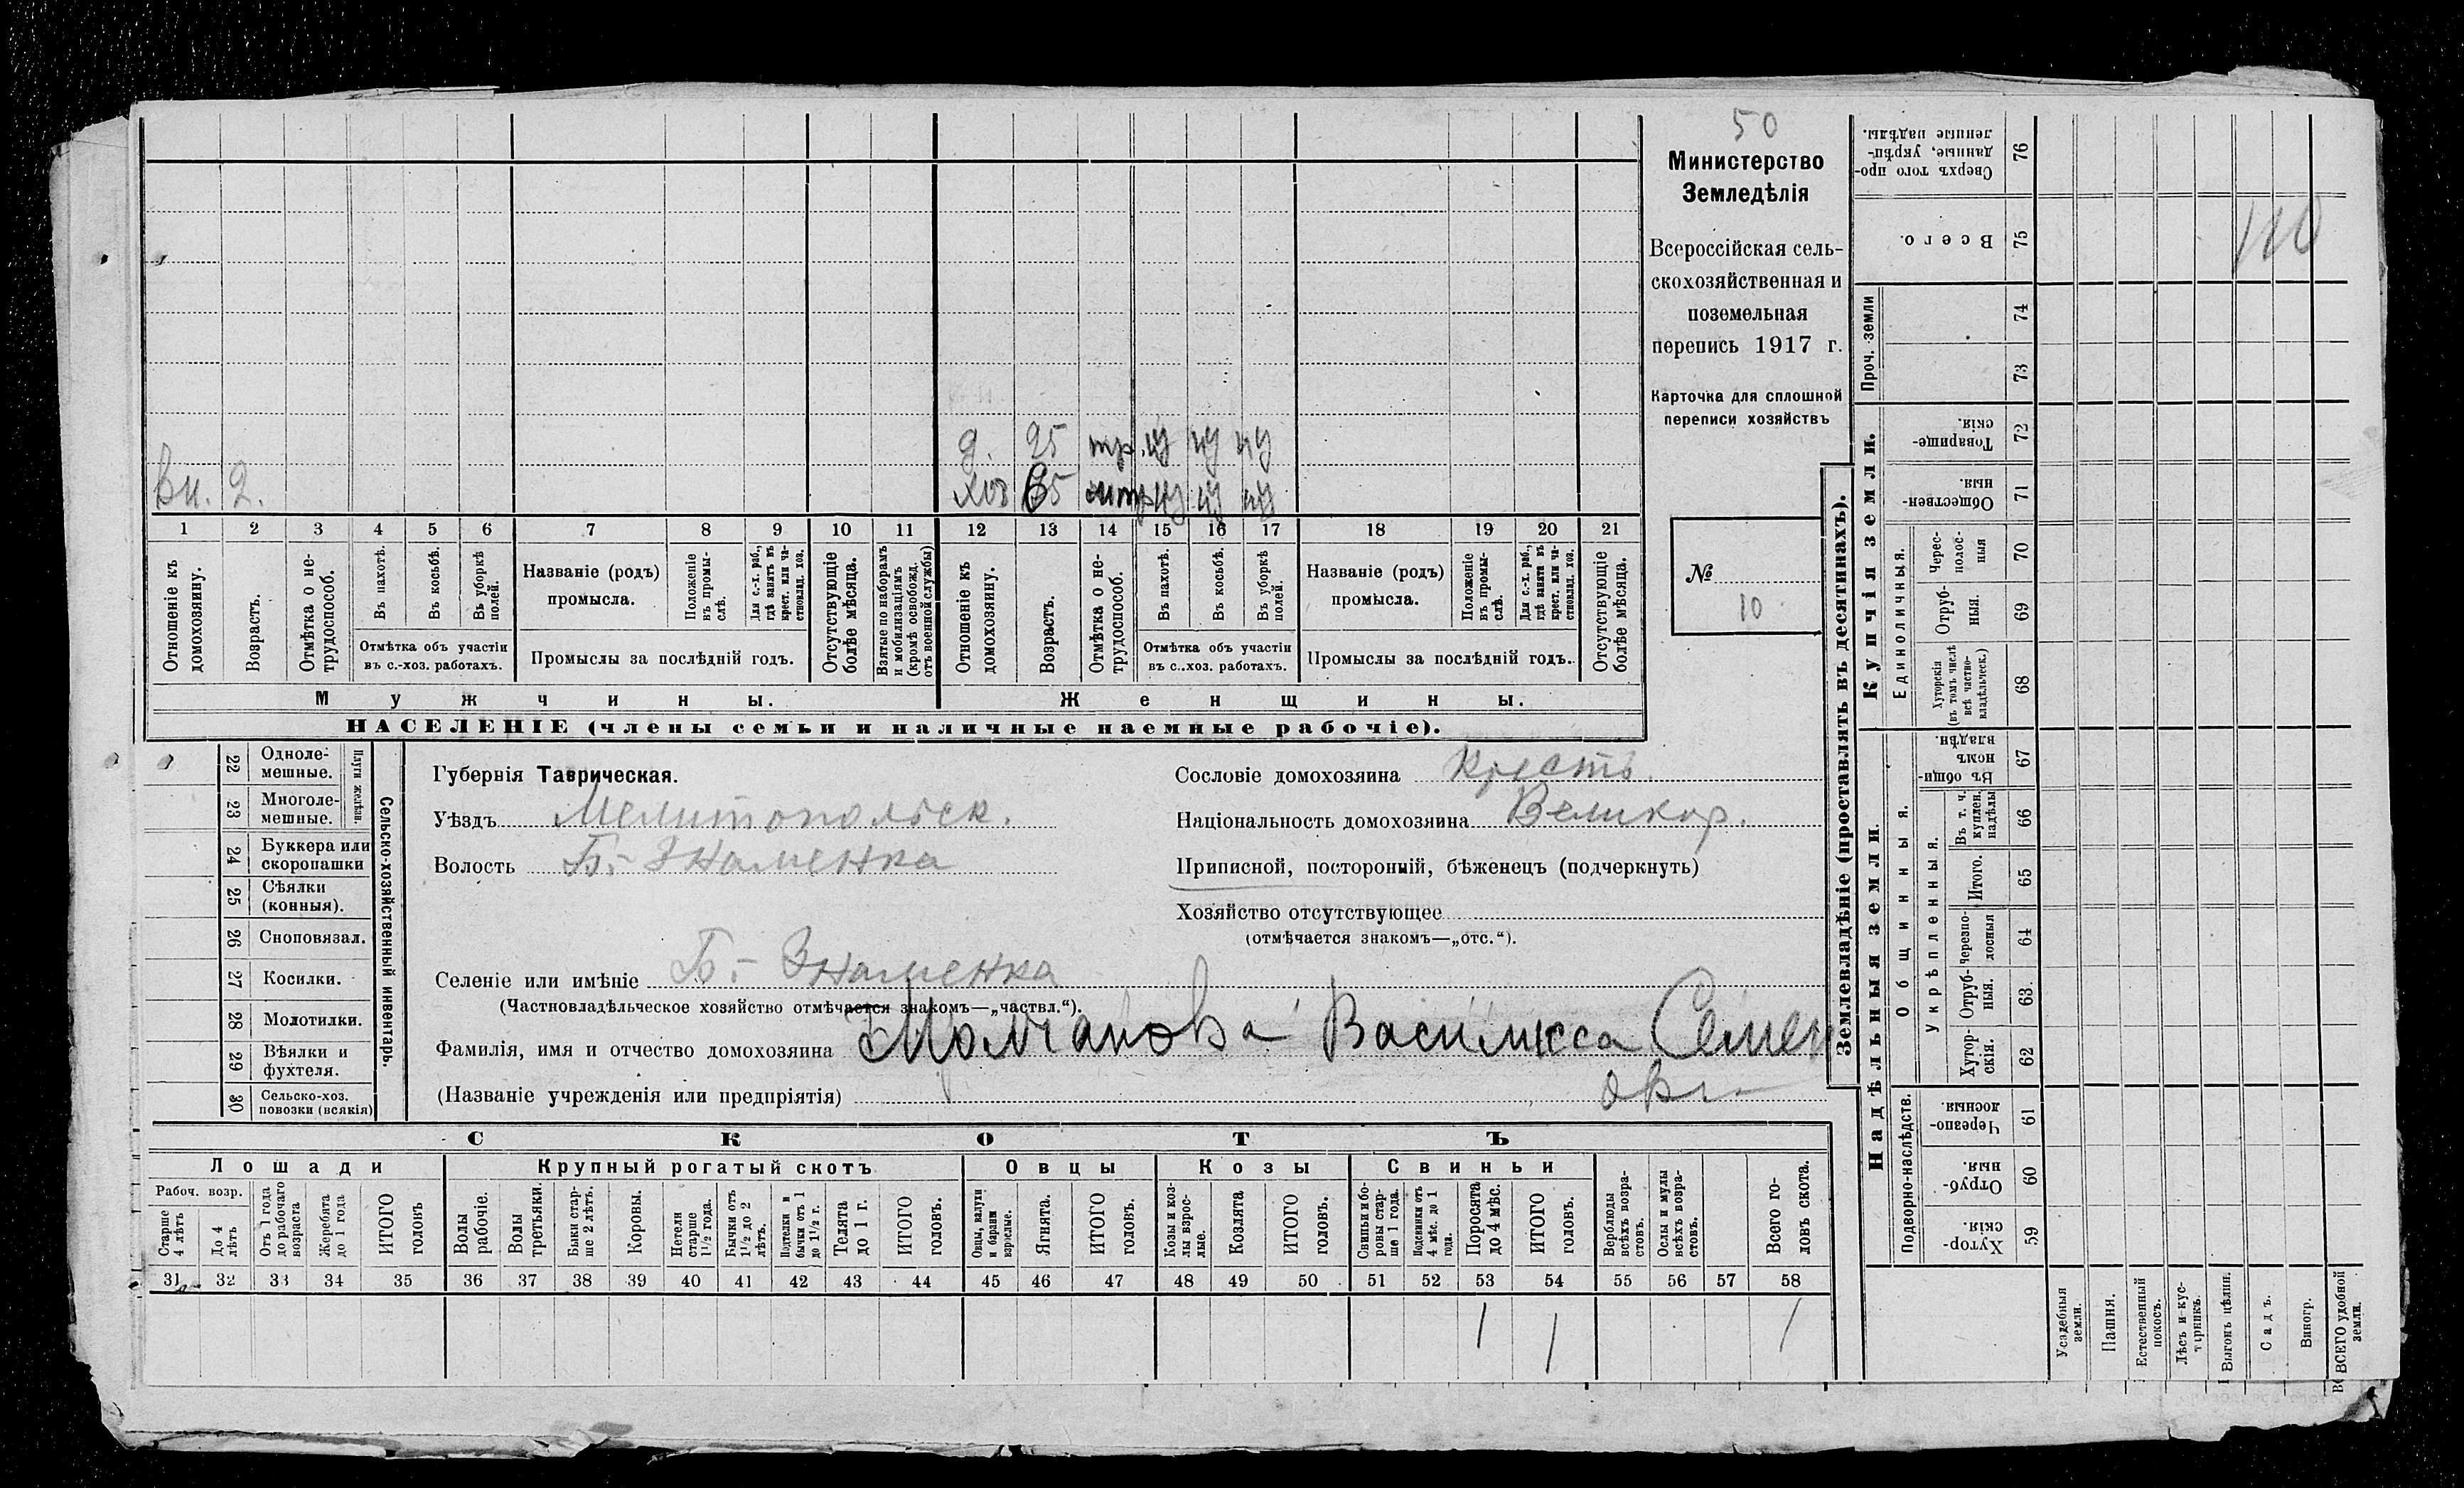 50
Министерство
Земледѣлія
Всероссійская сель-
скохозяйственная и
поземельная
перепись 1917 г.
Карточка для сплошной
переписи хозяйствъ
№
10
д. 25
вн. 2.
1 2 3 4 5 6 7 8 9 10 11 12 13 14 15 16 17 18 19 20 21
Отношеніе къ домохозяину.
Возрастъ.
Отмѣтка о не-трудоспособ.
Въ пахотѣ.
Въ косьбѣ.
Въ уборкѣ полей.
Отмѣтка объ участіи
въ с.-хоз. работахъ.
Названіе (родъ)
промысла.
Положеніе въ промы-слѣ.
Для с.-х. раб., гдѣ занятъ въ крест. или ча-стновлад. хоз.
Промыслы за послѣдній годъ.
Отсутствующіе болѣе мѣсяца.
Взятые по наборамъ и мобилизаціямъ (кромѣ освобожд. отъ военной службы)
Отношеніе къ домохозяину.
Возрастъ.
Отмѣтка о не-трудоспособ.
Въ пахотѣ.
Въ косьбѣ.
Въ уборкѣ полей.
Отмѣтка объ участіи
въ с..хоз. работахъ.
Названіе (родъ)
промысла.
Положеніе въ промы-слѣ.
Для с.-х. раб., гдѣ занята въ крест. или ча-стновлад. хоз.
Промыслы за послѣдній годъ.
Отсутствующіе болѣе мѣсяца.
Мужчины.
Женщины.
НАСЕЛЕНІЕ (члены семьи и наличные наемные рабочіе).
22 Одноле-мешные.
23 Многоле-мешные.
Плуги желѣзн.
24 Буккера или скоропашки
25 Сѣялки (конныя).
26 Сноповязал.
27 Косилки.
28 Молотилки.
29 Вѣялки и фухтеля.
30 Сельско-хоз. повозки (всякія)
Сельско-хозяйственный инвентарь.
Губернія Таврическая.
Уѣздъ Мелитопольск.
Волость Б.-Знаменка
Селеніе или имѣніе Б.-Знаменка
(Частновладѣльческое хозяйство отмѣчается знакомъ—„частвл.“).
Фамилія, имя и отчество домохозяина Молчанова Василисса Семен
овн
(Названіе учрежденія или предпріятія)
Сословіе домохозяина Крестъ.
Національность домохозяина Великор.
Приписной, посторонній, бѣженецъ (подчеркнуть)
Хозяйство отсутствующее
(отмѣчается знакомъ—„отс.“).
СКОТЪ
Лошади
Крупный рогатый скотъ
Овцы
Козы
Свиньи
Рабоч. возр.
Старше 4 лѣтъ
До 4 лѣтъ
Отъ 1 года до рабочаго возраста
Жеребята до 1 года
ИТОГО головъ
Волы рабочіе.
Волы третьяки.
Быки стар-ше 2 лѣтъ.
Коровы.
Нетели старше 1½ года.
Бычки отъ 1½ до 2 лѣтъ.
Подтелки и бычки отъ 1 до 1½ г.
Телята до 1 г.
ИТОГО головъ.
Овцы, валухи и бараны взрослые.
Ягнята.
ИТОГО головъ.
Козы и коз-лы взрос-лые.
Козлята
ИТОГО головъ.
Свиньи и бо-ровы стар-ше 1 года.
Подсвинки отъ 4 мѣс. до 1 года.
Поросята до 4 мѣс.
ИТОГО головъ.
Верблюды всѣхъ возра-стовъ.
Ослы и мулы всѣхъ возра-стовъ.
Всего го-ловъ скота.
31 32 33 34 35 36 37 38 39 40 41 42 43 44 45 46 47 48 49 50 51 52 53 54 55 56 57 58
1 1 1
Землевладѣніе (проставлять въ десятинахъ).
Купчія земли.
Надѣльныя земли.
Сверхъ того про-данные, укрѣп-ленные надѣлы. 76
Всего. 75
Проч. земли 74 73
Товарище-скія. 72
Обществен-ныя. 71
Единоличныя.
Черес-полос-ныя 70
Отруб-ныя. 69
Хуторскія (въ томъ числѣ всѣ частно-владѣльческ.) 68
Общинныя.
Въ общин-номъ владѣн. 67
Укрѣпленныя.
Въ т. ч. куплен. надѣлы 66
Итого. 65
Черезпо-лосныя 64
Отруб-ныя. 63.
Хутор-скія. 62
Подворно-наслѣдств.
Черезпо-лосныя. 61
Отруб-ныя. 60
Хутор-скія. 59
Усадебныя земли.
Пашня.
Естественный покосъ.
Лѣсъ и кус-тарникъ.
Выгонъ цѣлин.
Садъ.
Виногр.
ВСЕГО удобной земли.